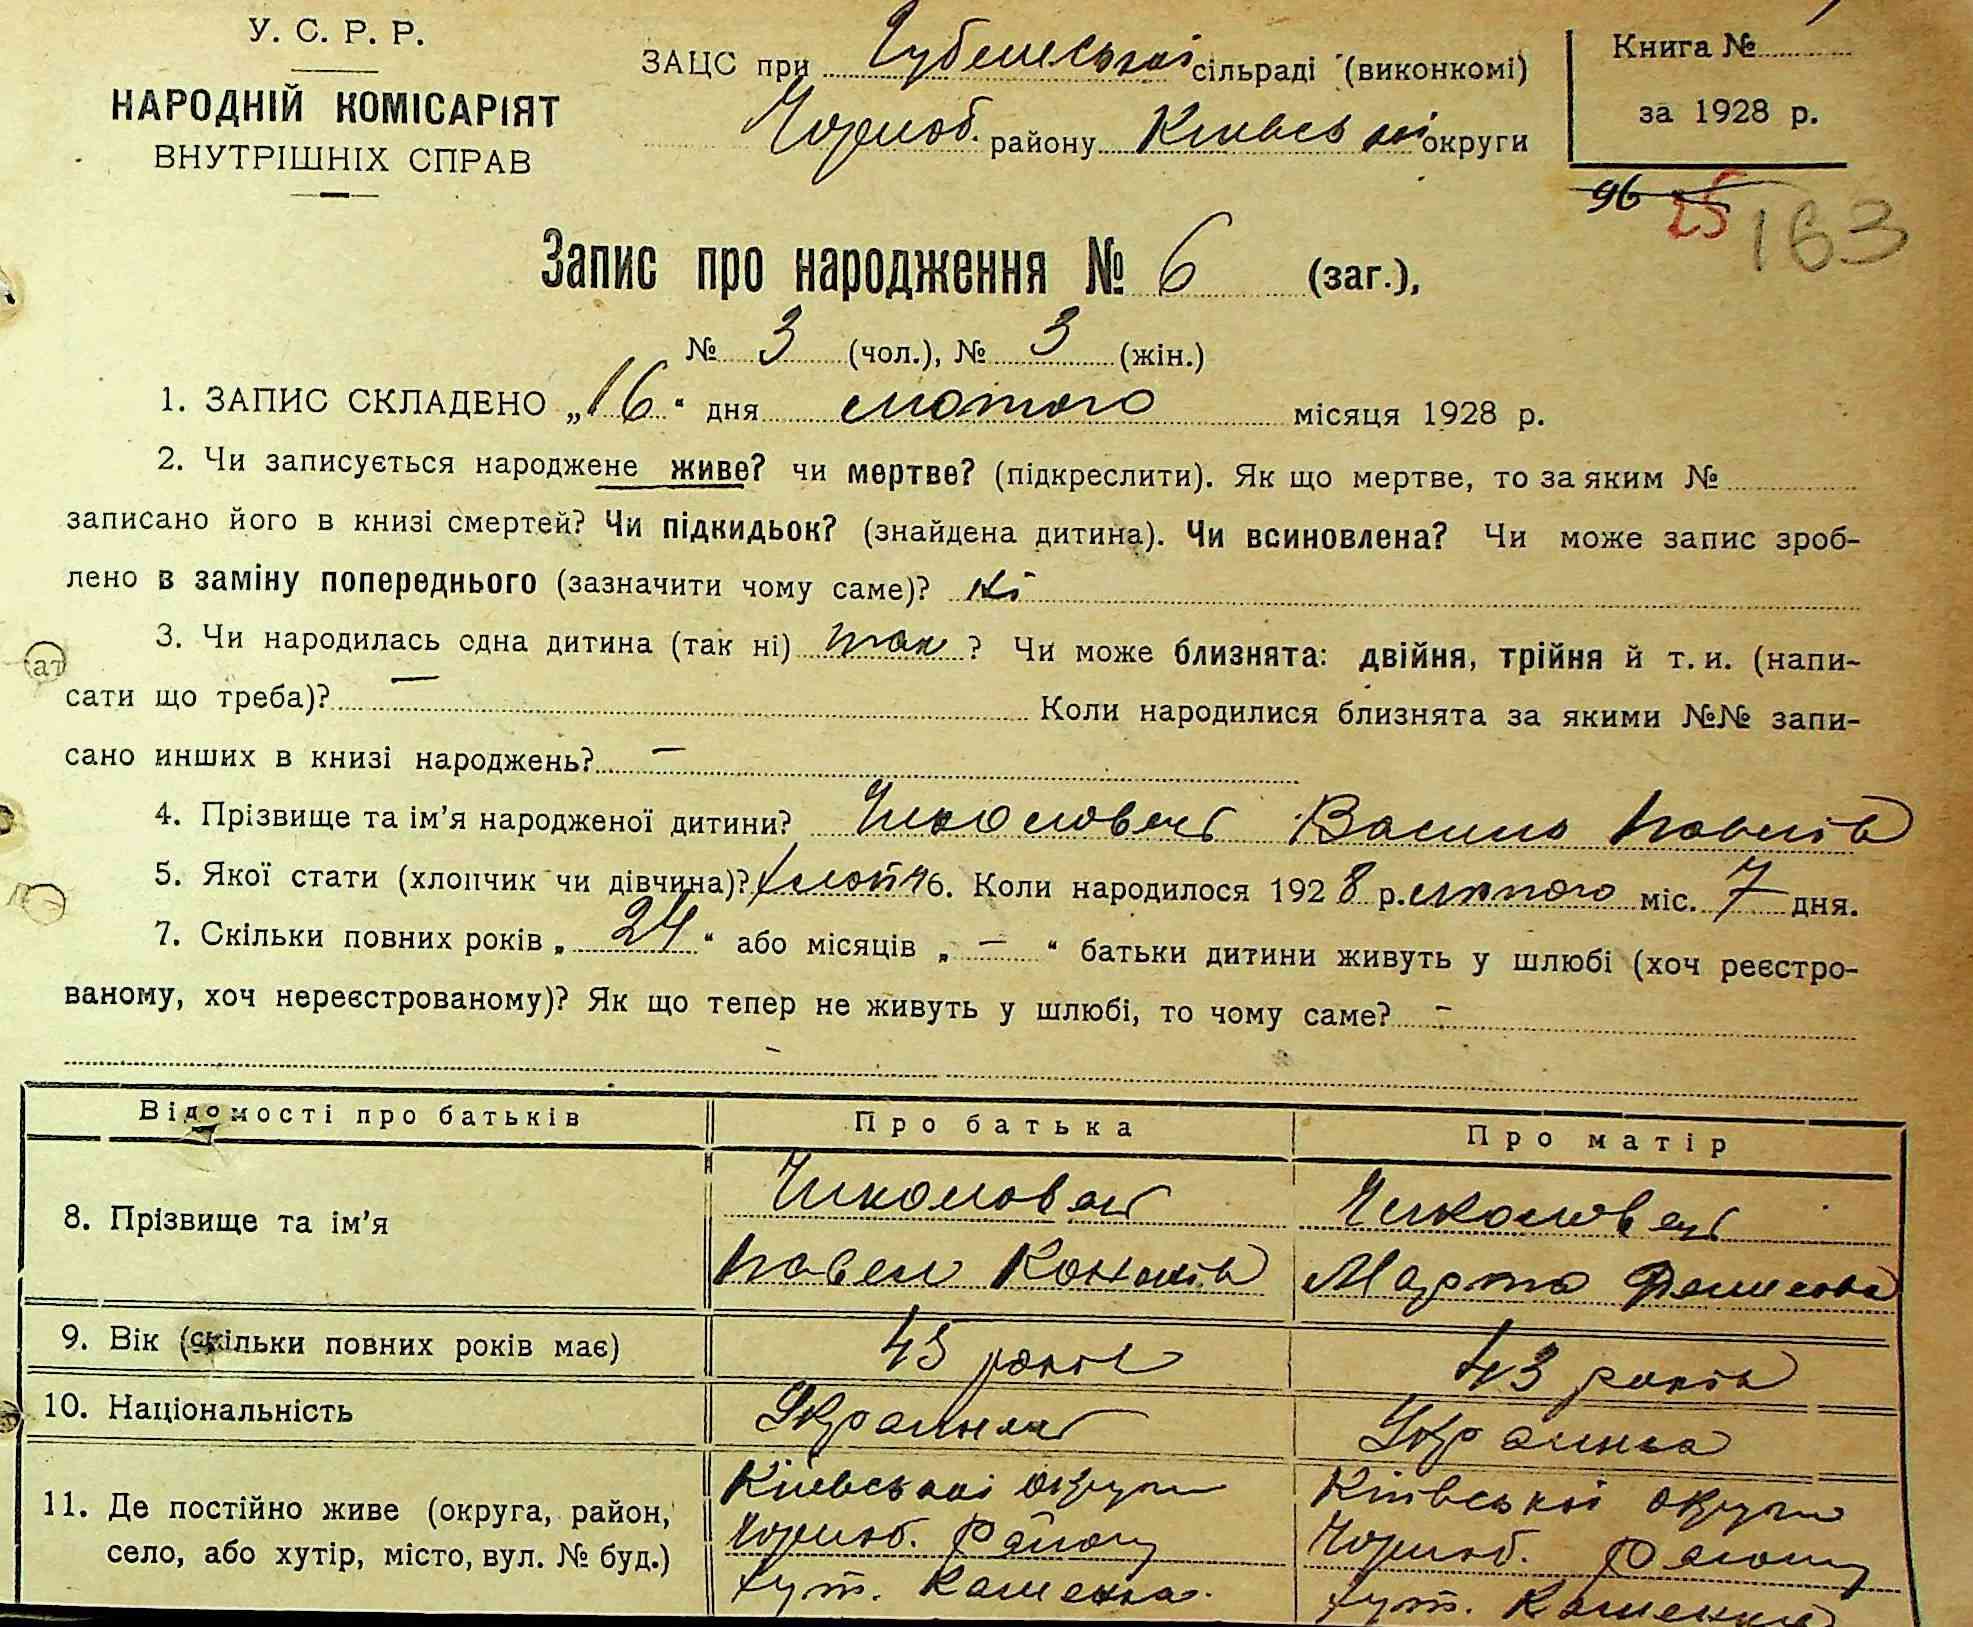 У. С. Р. Р.
НАРОДНІЙ КОМІСАРІЯТ
ВНУТРІШНІХ СПРАВ
ЗАЦС при сільраді (виконкомі)
Чорноб. району Київської округи
Книга №
за 1928 р.
96 25 163
Запис про народження № 6 (заг.),
№ 3 (чол.), № 3 (жін.)
1. ЗАПИС СКЛАДЕНО „16“ дня лютого місяця 1928 р.
2. Чи записується народжене живе? чи мертве? (підкреслити). Як що мертве, то за яким №
записано його в книзі смертей? Чи підкидьок? (знайдена дитина). Чи всиновлена? Чи може запис зроб-
лено в заміну попереднього (зазначити чому саме)? ні
3. Чи народилась одна дитина (так ні) так ? Чи може близнята: двійня, трійня й т. и. (напи-
сати що треба)? — Коли народилися близнята за якими №№ запи-
сано инших в книзі народжень? —
4. Прізвище та ім'я народженої дитини? Чиколовець Василь Павлів
5. Якої стати (хлопчик чи дівчина)? хлопч 6. Коли народилося 1928 р. лютого міс. 7 дня.
7. Скільки повних років „24“ або місяців „—“ батьки дитини живуть у шлюбі (хоч реєстро-
ваному, хоч нереєстрованому)? Як що тепер не живуть у шлюбі, то чому саме? -
Відомості про батьків Про батька Про матір
8. Прізвище та ім'я Чиколовець Чиколовець
Павел Кононів Марта
9. Вік (скільки повних років має) 45 років 43 років
10. Національність Українець Українка
11. Де постійно живе (округа, район, Київської округи Київської округи
село, або хутір, місто, вул. № буд.) Чорноб. Району Чорноб. Району
хут. хут.